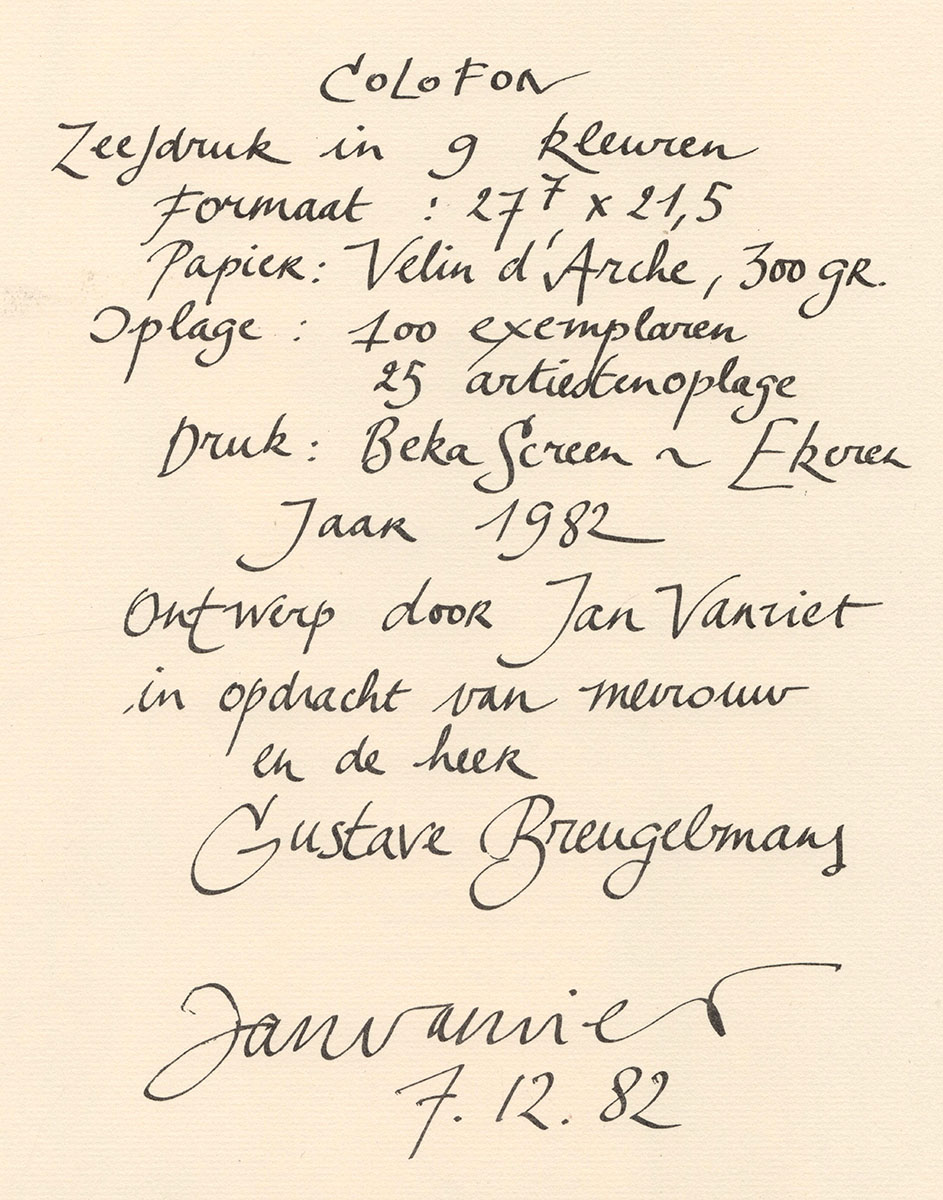 Colofon
Zeefdruk in 9 kleuren
Formaat : 27,7 x 21,5
Papier: Velin d'Arche, 300 gr.
Oplage : 100 exemplaren
25 artiestenoplage
Druk: Beka Screen ~ Ekeren
Jaar 1982
Ontwerp door Jan Vanriet
in opdracht van mevrouw
en de heer
Gustave Breugelmans
Jan Vanriet
7. 12. 82